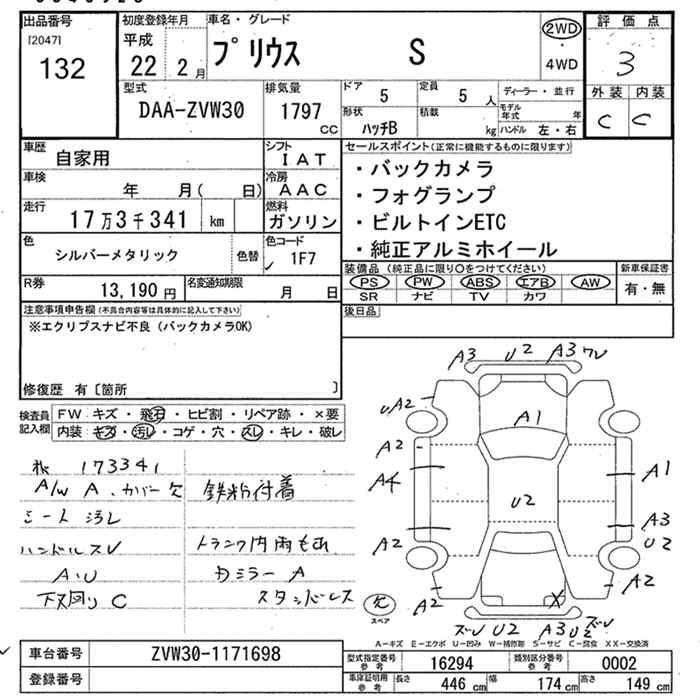 出品番号
[2047]
132
初度登録年月
平成
22 2月
車名・グレード
プリウス S
2WD
・
4WD
評価点
3
外装 内装
C C
型式
DAA-ZVW30
排気量
1797
CC
ドア
5
定員
5 人
ディーラー・並行
形状
ハッチB
積載
kg
モデル
年式 年
ハンドル 左・右
車歴
自家用
シフト
IAT
車検
年 月( 日)
冷房
AAC
走行
17万3千341 km
燃料
ガソリン
色
シルバーメタリック
色替
色コード
1F7
R券
13,190円
名変通知期限
月 日
セールスポイント(正常に機能するものに限ります)
・バックカメラ
・フォグランプ
・ビルトインETC
・純正アルミホイール
装備品(純正品に限り○をつけてください)
PS PW ABS エアB AW
SR ナビ TV カワ
新車保証書
有・無
後日品
注意事項申告欄(不具合内容等は具体的に記入して下さい)
※エクリプスナビ不良(バックカメラOK)
修復歴 有〔箇所 〕
検査員
記入欄
FW キズ・飛石・ヒビ割・リペア跡・×要
内装 キズ・汚レ・コゲ・穴・スレ・キレ・破レ
173341
A/W A、カバー欠
鉄粉付着
シート汚レ
ハンドルスレ
トランク内雨もれ
A・U
Dミラー A
下廻り C
スタッドレス
A3 U2 A3 ワレ
UA2
A1
A2
A4
A1
U2
A3
U2
A2
A2
A2
欠
スペア
X
ズレ U2 A3 U2 ズレ
A-キズ E-エクボ U-凹み W-補修跡 S-サビ C-腐食 XX-交換済
車台番号
ZVW30-1171698
登録番号
型式指定番号
参考
16294
類別区分番号
参考
0002
車庫証明用
参考
長さ
446 cm
幅
174 cm
高さ
149 cm